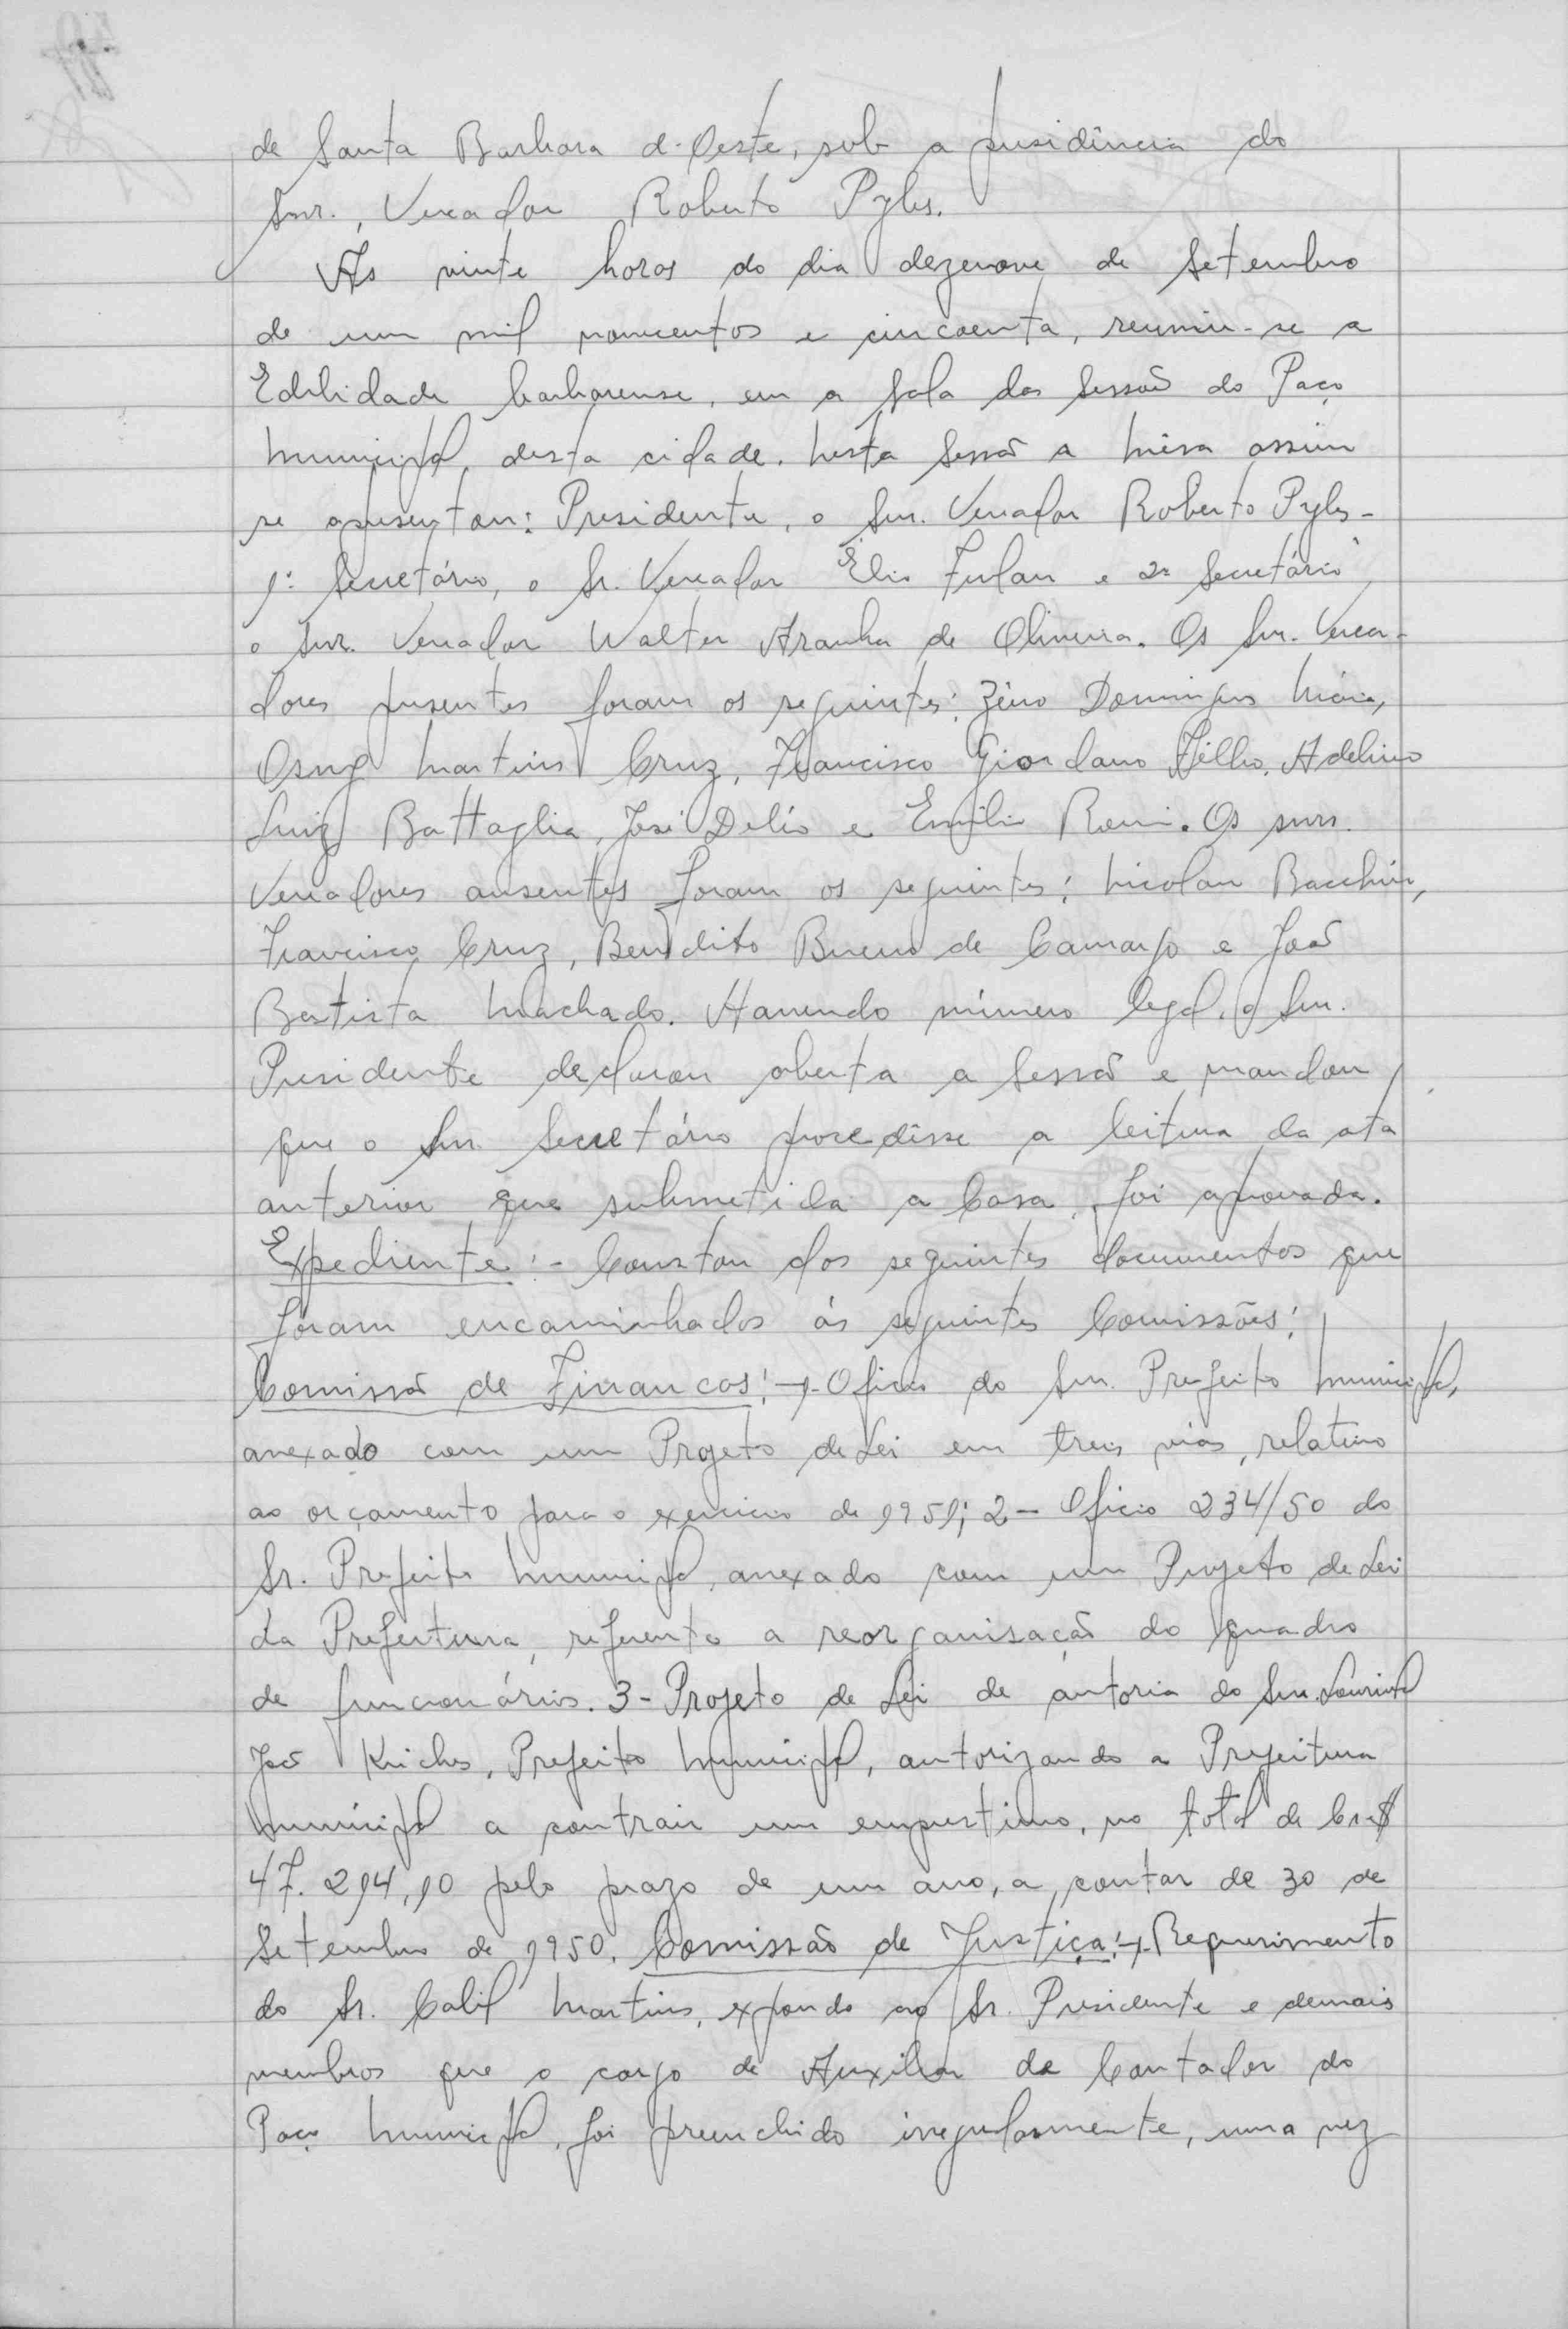 de Santa Barbara d'Oeste, sob a presidência do
Snr., Vereador Roberto Pyles.
As vinte horas do dia dezenove de Setembro
de um mil novecentos e cincoenta, reuniu-se a
Edilidade barbarense, em a sala das Sessão do Paço
Municipal, desta cidade. Nesta Sessão a Mêsa assim
se apresentou: Presidente, o Snr. Vereador Roberto Pyles-
1º Secretário, o Sr. Vereador Élio Furlan e 2º Secretário
o Snr. Vereador Walter Aranha de Oliveira. Os Snr. Verea-
dores presentes foram os seguintes: Zêno Domingos Maia,
Osny Martins Cruz, Francisco Giordano Filho, Adelino
Luiz Battaglia, José Delío e Emilio Romi. Os snrs.
Vereadores ausentes foram os seguintes: Nicolau Bacchin,
Francisco Cruz, Benedito Bueno de Camargo e João
Batista Machado. Havendo número legal, o Snr.
Presidente declarou aberta a Sessão e mandou
que o Snr. Secretário procedêsse a leitura da ata
anterior que submetida a Casa, foi aprovada.
Expediente:- Constou dos seguintes documentos que
foram encaminhados ás seguintes Comissões:
Comissão de Financas: 1- Oficio do Snr. Prefeito Municipal,
anexado com um Projeto de Lei em treis vias, relativo
ao orçamento para o exercicio de 1951; 2- Oficio 234/50 do
Sr. Prefeito Municipal, anexado com um Projeto de Lei
da Prefeitura, referente a reorganisação do quadro
de funcionários. 3- Projeto de Lei de autoria do Snr. Lourival
João Kuiches, Prefeito Municipal, autorizando a Prefeitura
Municipal a contrair um emprestimo, no total de Cr$
47.214,10 pelo prazo de um ano, a contar de 30 de
Setembro de 1950. Comissão de Justiça: 1- Requerimento
do Sr. Calil Martins, expondo ao Sr. Presidente e demais
membros que o cargo de Auxiliar de Contador do
Paço Municipal, foi preenchido irregularmente, uma vez